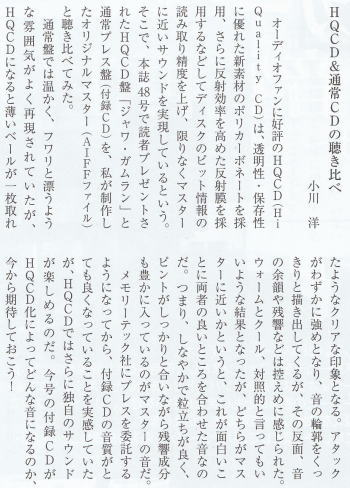 HQCD&通常CDの聴き比べ
小川 洋
オーディオファンに好評のHQCD(Hi
Quality CD)は、透明性・保存性
に優れた新素材のポリカーボネートを採
用、さらに反射効率を高めた反射膜を採
用するなどしてディスクのピット情報の
読み取り精度を上げ、限りなくマスター
に近いサウンドを実現しているという。
そこで、本誌48号で読者プレゼントさ
れたHQCD盤「ジャワ・ガムラン」と
通常プレス盤(付録CD)を、私が制作し
たオリジナルマスター(AIFFファイル)
と聴き比べてみた。
通常盤では温かく、フワリと漂うよう
な雰囲気がよく再現されていたが、
HQCDになると薄いベールが一枚取れ
たようなクリアな印象となる。アタック
がわずかに強めとなり、音の輪郭をくっ
きりと描き出してくるが、その反面、音
の余韻や残響などは控えめに感じられた。
ウォームとクール、対照的と言ってもい
いような結果となったが、どちらがマス
ターに近いかというと、これが面白いこ
とに両者の良いところを合わせた音なの
だ。つまり、しなやかで粒立ちが良く、
ピントがしっかりと合いながら残響成分
も豊かに入っているのがマスターの音だ。
メモリーテック社にプレスを委託する
ようになってから、付録CDの音質がと
ても良くなっていることを実感していた
が、HQCDではさらに独自のサウンド
が楽しめるのだ。今号の付録CDが
HQCD化によってどんな音になるのか、
今から期待しておこう!